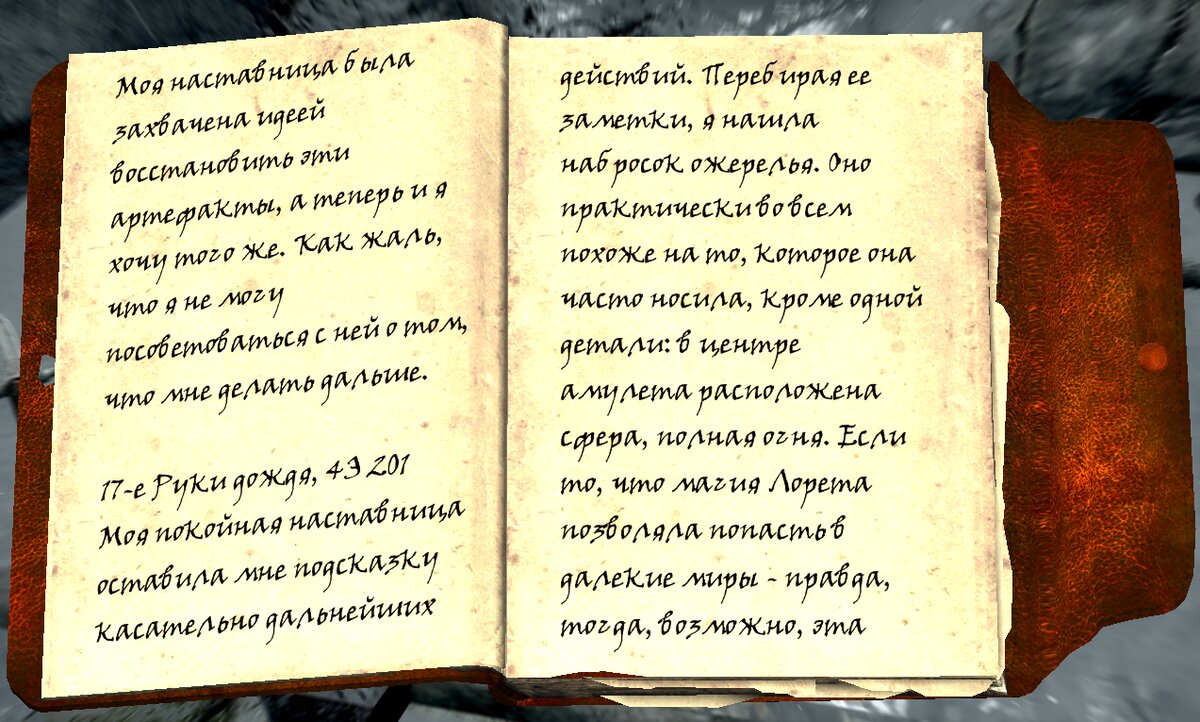 Моя наставница была
захвачена идеей
восстановить эти
артефакты, а теперь и я
хочу того же. Как жаль,
что я не могу
посоветоваться с ней о том,
что мне делать дальше.
17-е Руки дождя, 4Э 201
Моя покойная наставница
оставила мне подсказку
касательно дальнейших
действий. Перебирая ее
заметки, я нашла
набросок ожерелья. Оно
практически во всем
похоже на то, которое она
часто носила, кроме одной
детали: в центре
амулета расположена
сфера, полная огня. Если
то, что магия Лорета
позволяла попасть в
далекие миры - правда,
тогда, возможно, эта